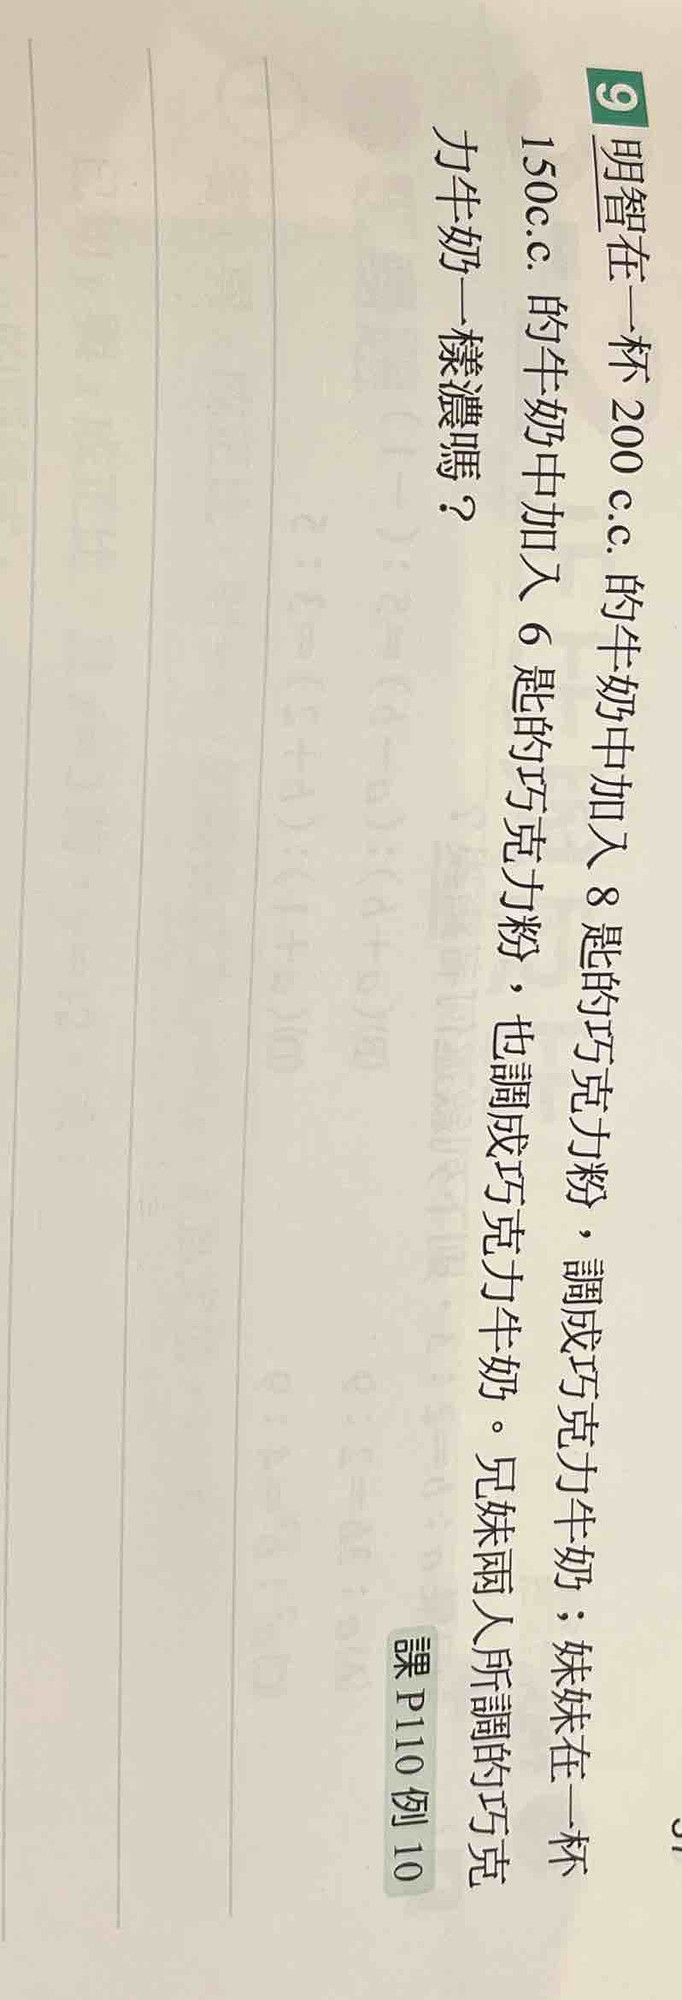 9 明智在一杯 200 c.c. 的牛奶中加入 8 匙的巧克力粉，調成巧克力牛奶；妹妹在一杯
150c.c. 的牛奶中加入 6 匙的巧克力粉，也調成巧克力牛奶。兄妹兩人所調的巧克
力牛奶一樣濃嗎？
課 P110 例 10